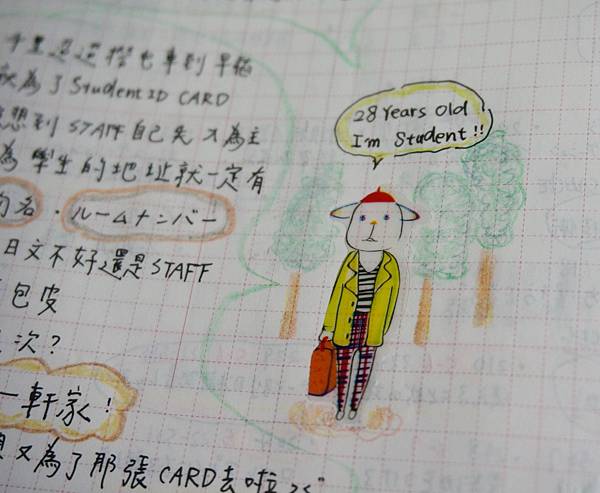 千里迢迢搭電車到早稻
就為了 Student ID CARD
想到 STAFF 自己先入為主
為 學生的地址就一定有
名・ルームナンバー
日文不好還是 STAFF
包皮
次?
一軒家!
又為了那張 CARD 去啦
28 Years Old
I'm Student!!